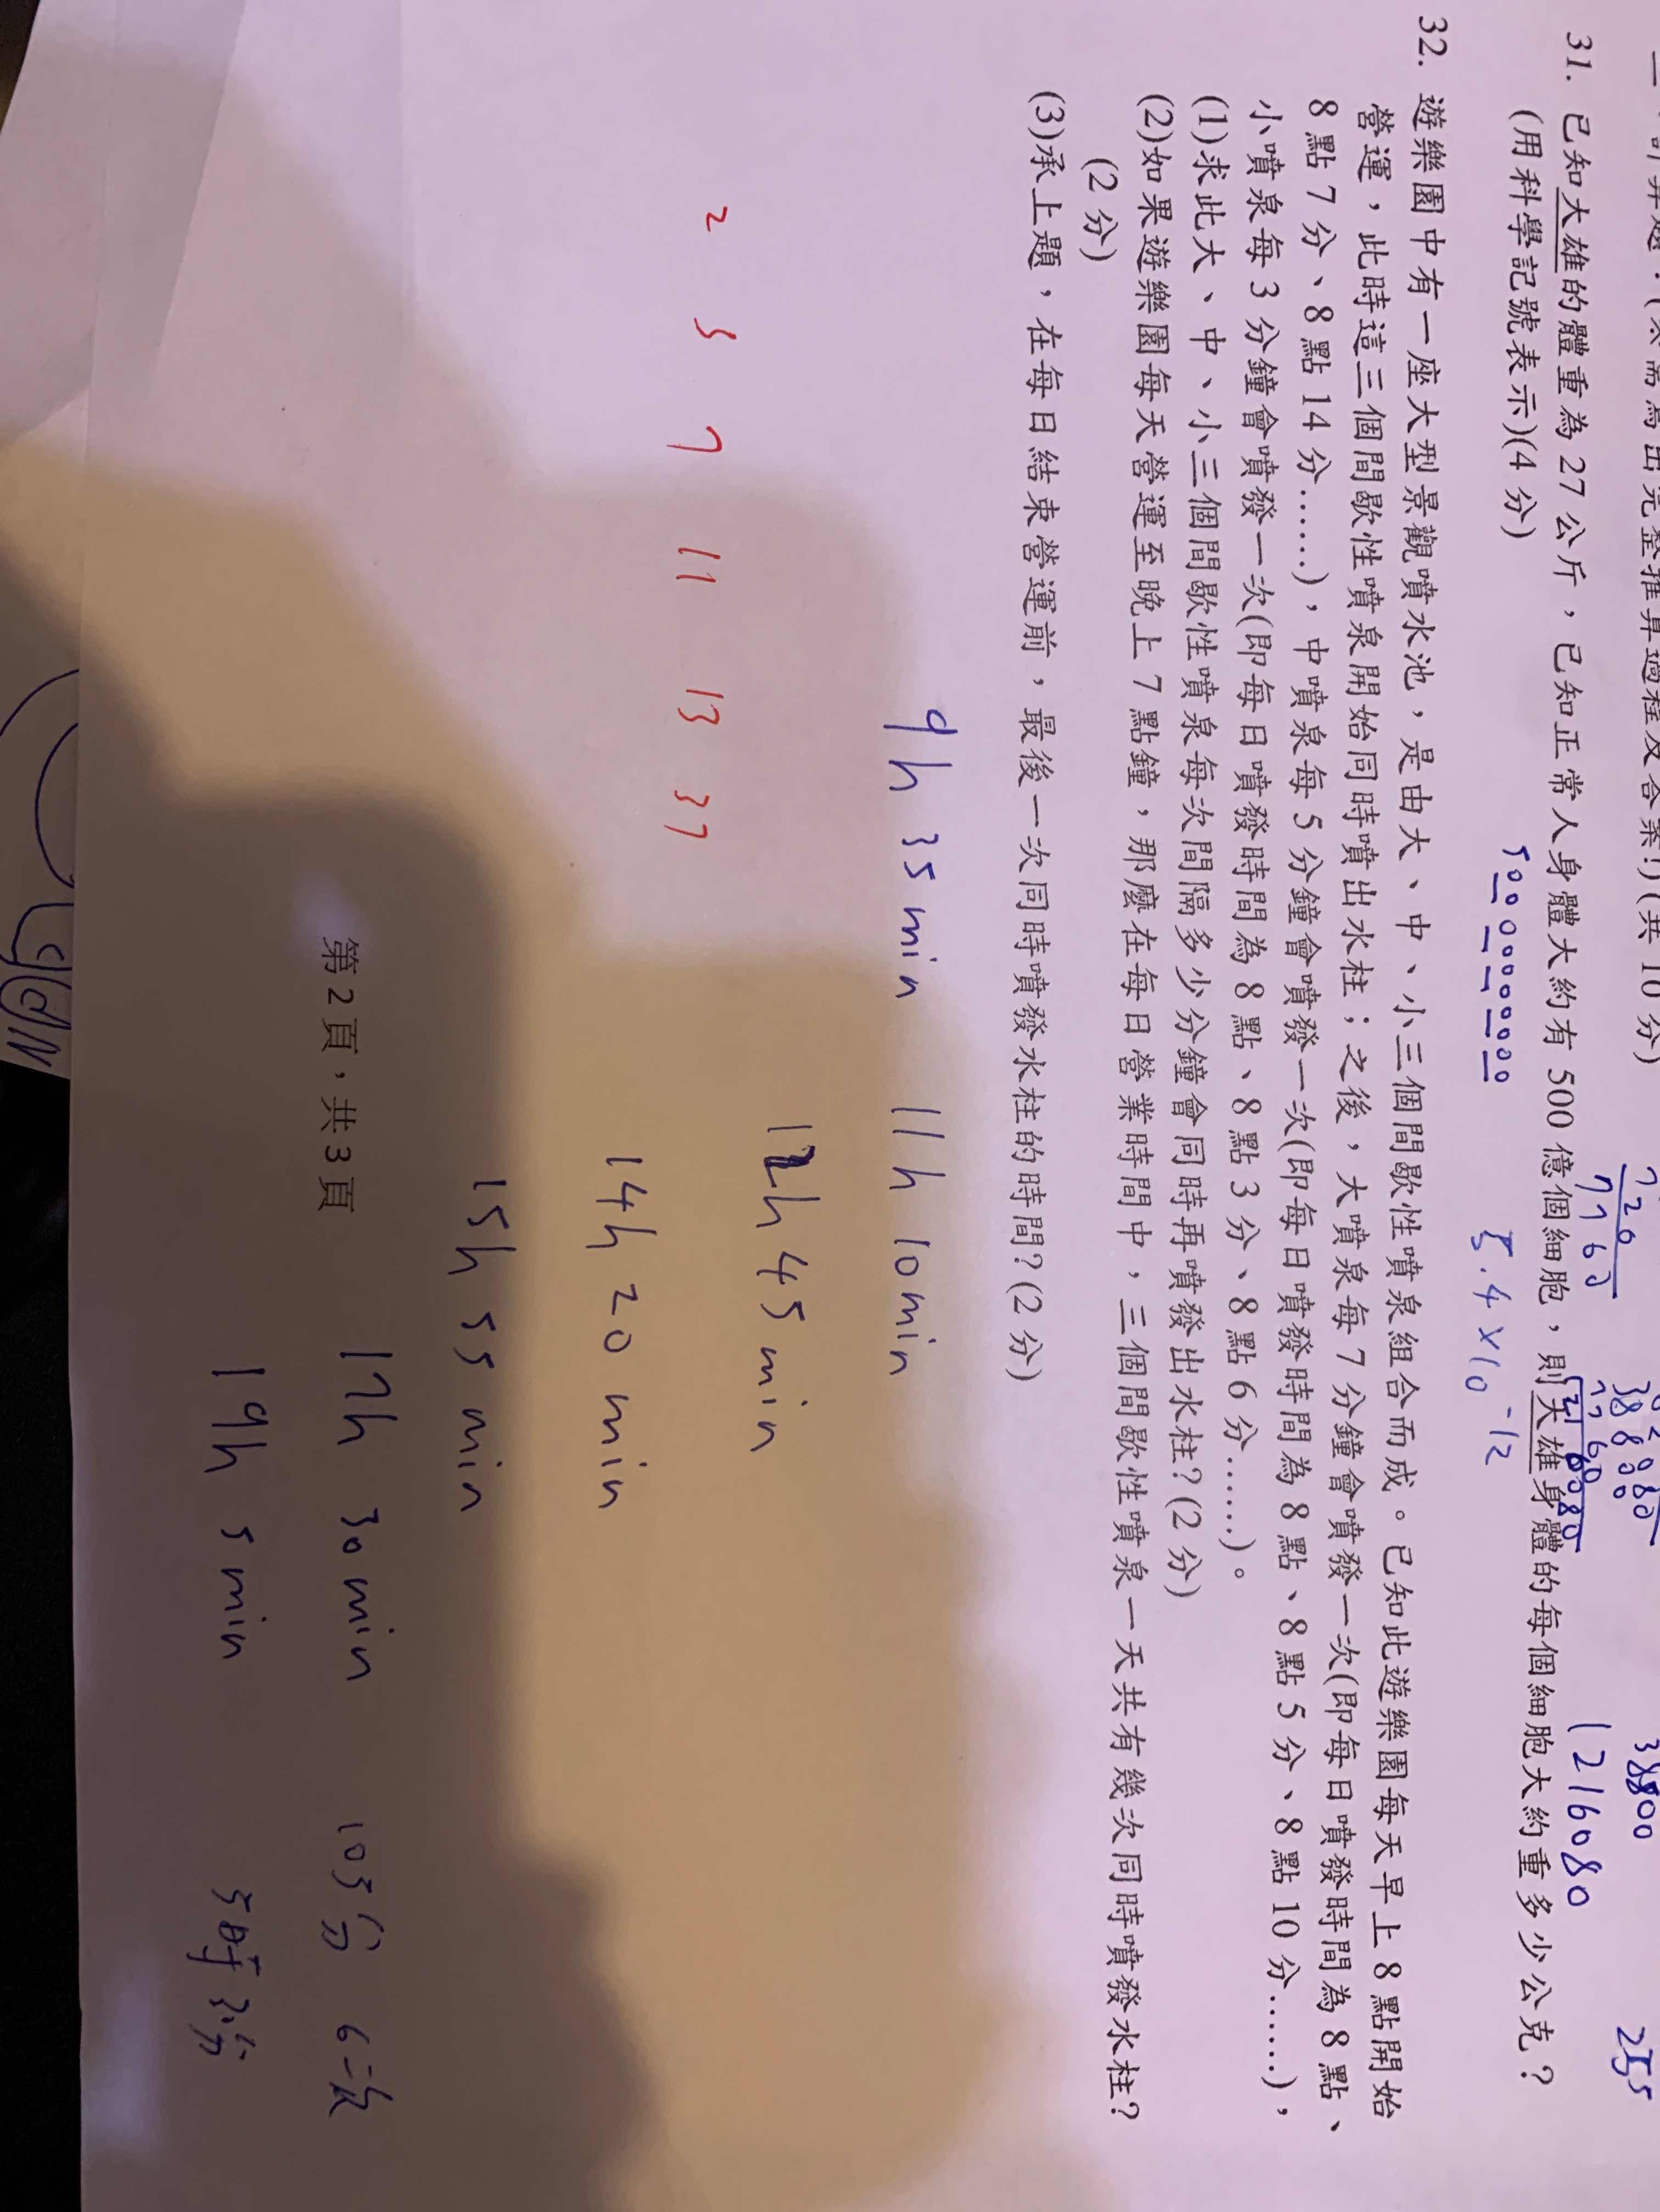 720
7760
38800
7760
1216080
38800
1216080
255
31. 已知大雄的體重為 27 公斤，已知正常人身體大約有 500 億個細胞，則大雄身體的每個細胞大約重多少公克？
(用科學記號表示)(4 分)
50000000000
5.4×10⁻¹²
32. 遊樂園中有一座大型景觀噴水池，是由大、中、小三個間歇性噴泉組合而成。已知此遊樂園每天早上 8 點開始
營運，此時這三個間歇性噴泉開始同時噴出水柱；之後，大噴泉每 7 分鐘會噴發一次(即每日噴發時間為 8 點、
8 點 7 分、8 點 14 分……)，中噴泉每 5 分鐘會噴發一次(即每日噴發時間為 8 點、8 點 5 分、8 點 10 分……)，
小噴泉每 3 分鐘會噴發一次(即每日噴發時間為 8 點、8 點 3 分、8 點 6 分……)。
(1)求此大、中、小三個間歇性噴泉每次間隔多少分鐘會同時再噴發出水柱？(2 分)
(2)如果遊樂園每天營運至晚上 7 點鐘，那麼在每日營業時間中，三個間歇性噴泉一天共有幾次同時噴發水柱？
(2 分)
(3)承上題，在每日結束營運前，最後一次同時噴發水柱的時間？(2 分)
9h 35min 11h 10min
12h 45min
2 3 7 11 13 37
14h 20min
15h 55min
17h 30min 105分 6次
19h 5min 5時3分
第 2 頁，共 3 頁